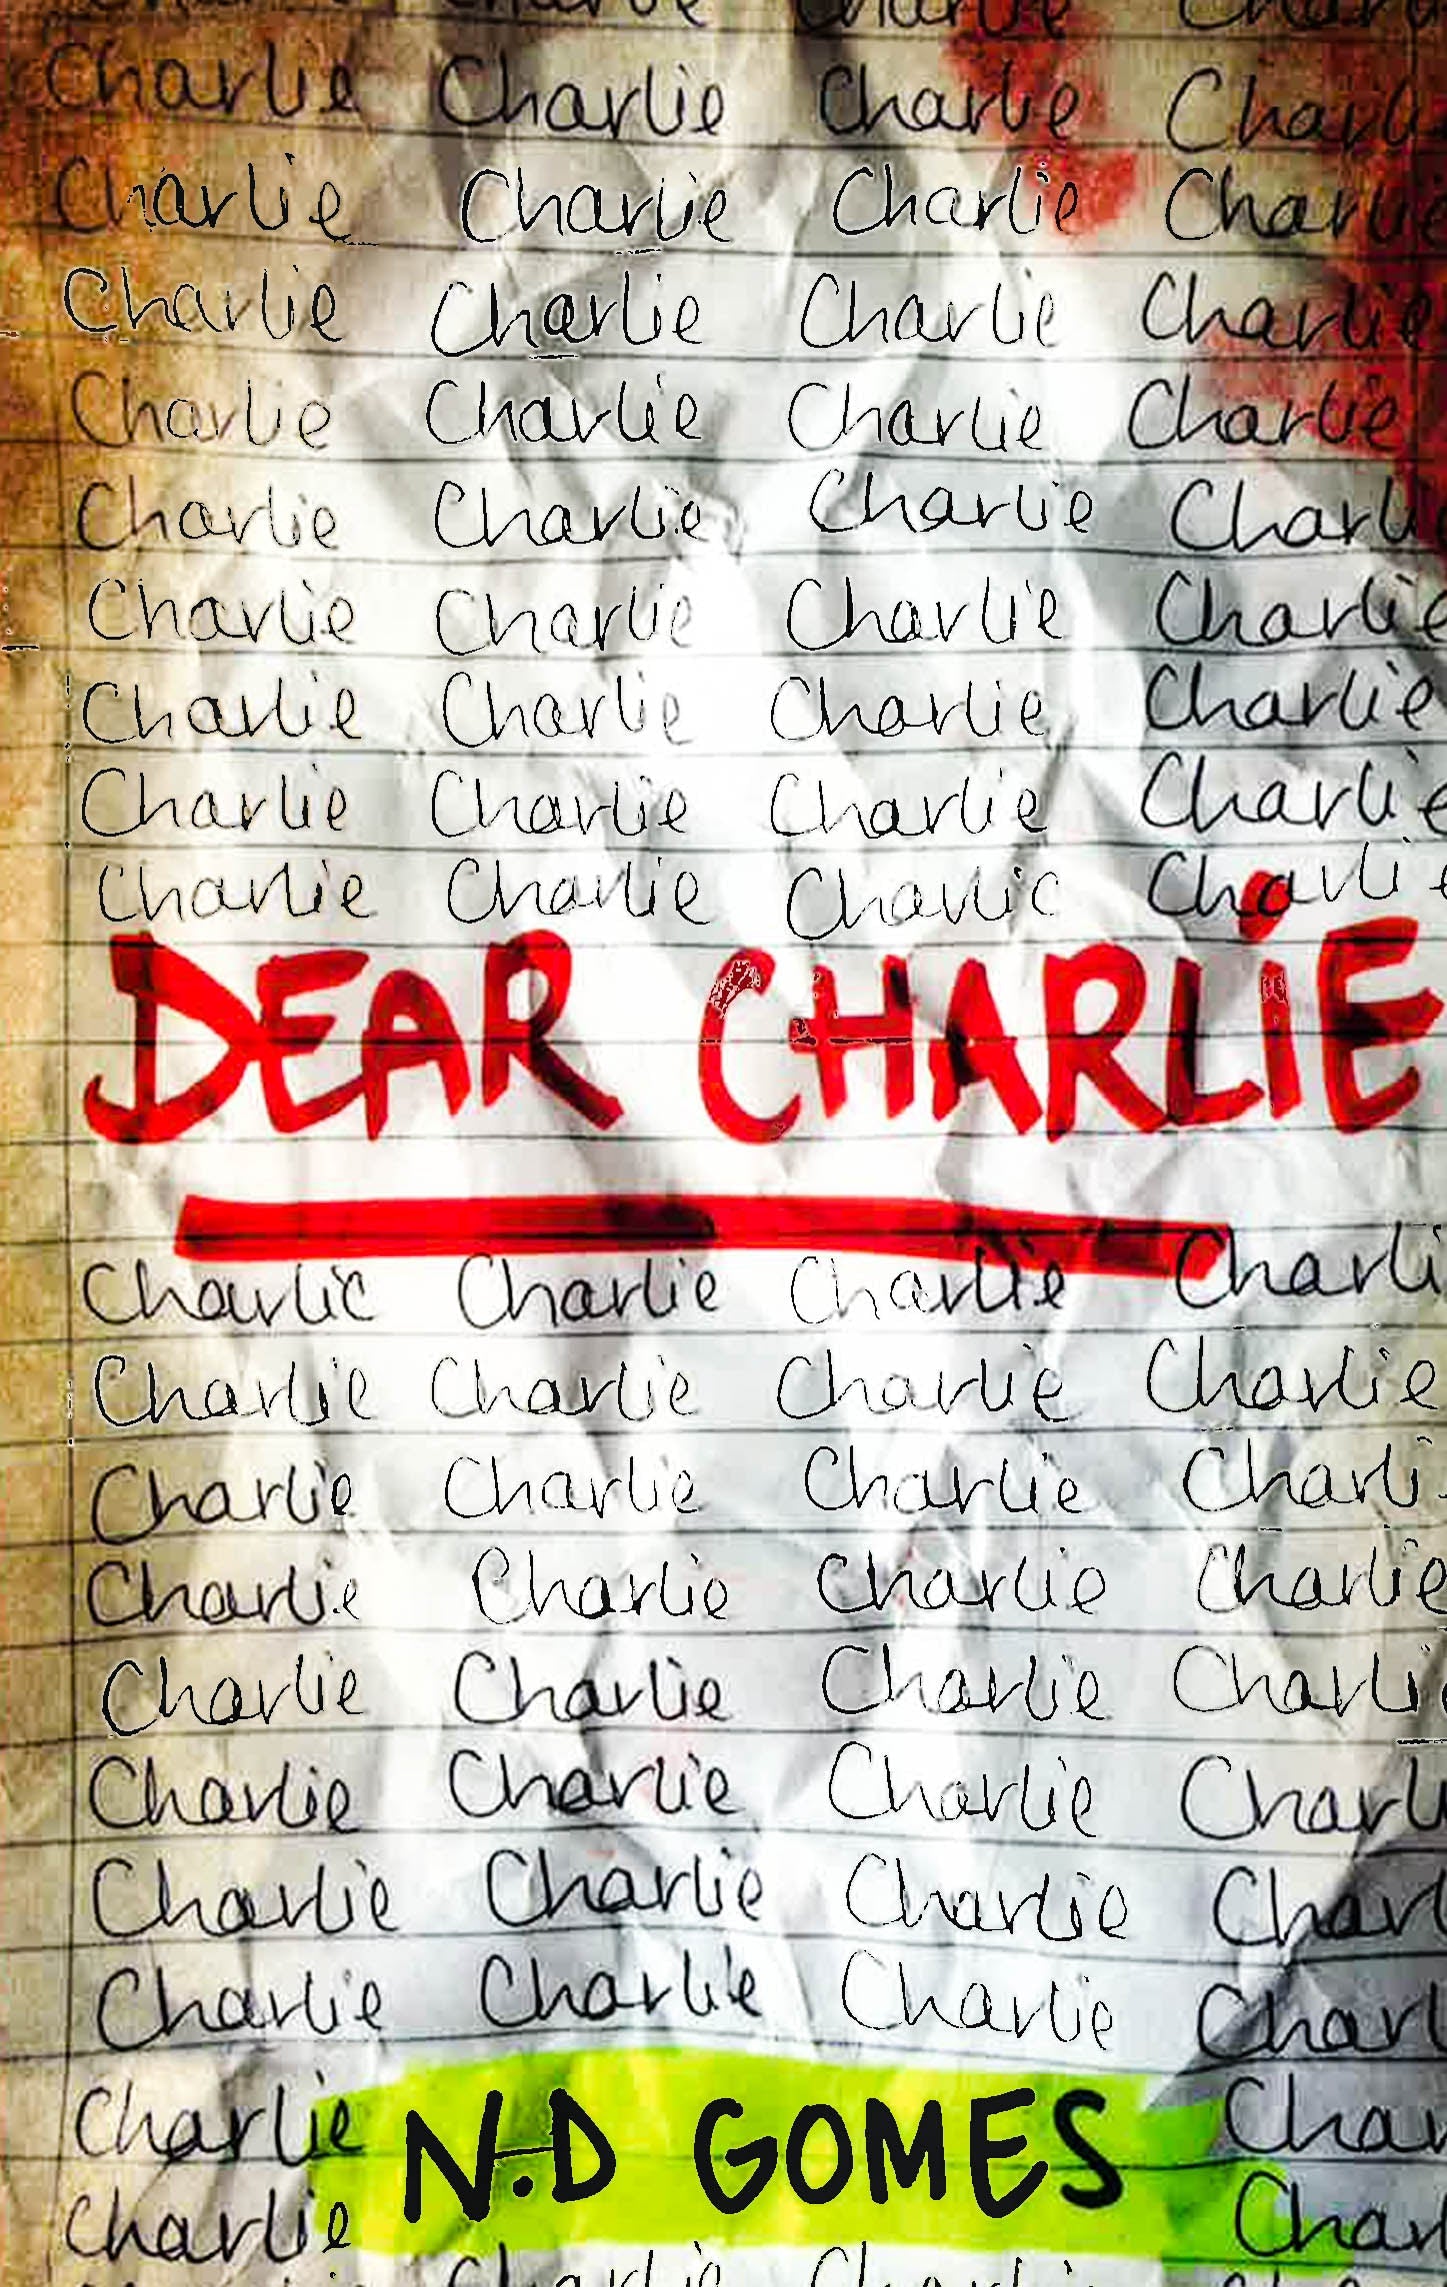 Charlie Charlie Charlie Charli
Charlie Charlie Charlie Charlie
Charlie Charlie Charlie Charlie
Charlie Charlie Charlie Charlie
Charlie Charlie Charlie Charli
Charlie Charlie Charlie Charlie
Charlie Charlie Charlie Charlie
Charlie Charlie Charlie Charlie
Charlie Charlie Charlie Charlie
DEAR CHARLiE
Charlie Charlie Charlie Charli
Charlie Charlie Charlie Charlie
Charlie Charlie Charlie Charli
Charlie Charlie Charlie Charlie
Charlie Charlie Charlie Charli
Charlie Charlie Charlie Charl
Charlie Charlie Charlie Charl
Charlie Charlie Charlie Charl
Charlie Char
N.D GOMES
Charlie Char